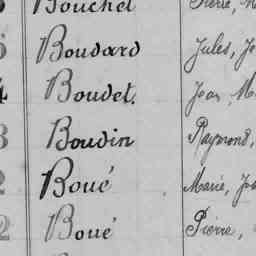 Bouchet Pierre,
5 Boudard Jules,
4 Boudet. Jean,
3 Boudin Raymond,
2 Boué Marie,
2 Boué Pierre,